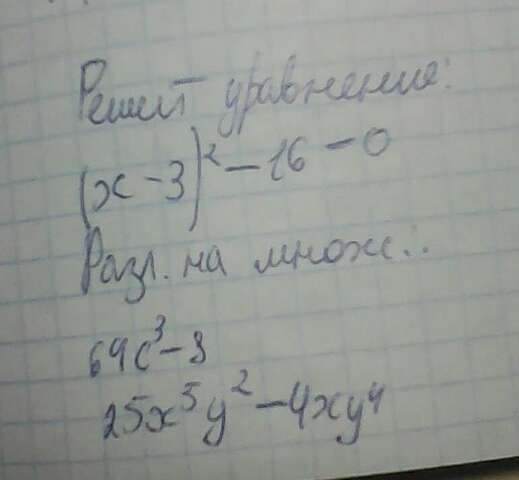 Решит уравнение:
(x - 3)² - 16 - 0
Разл. на множ.:
64c³ - 8
25x⁵y² - 4xy⁴